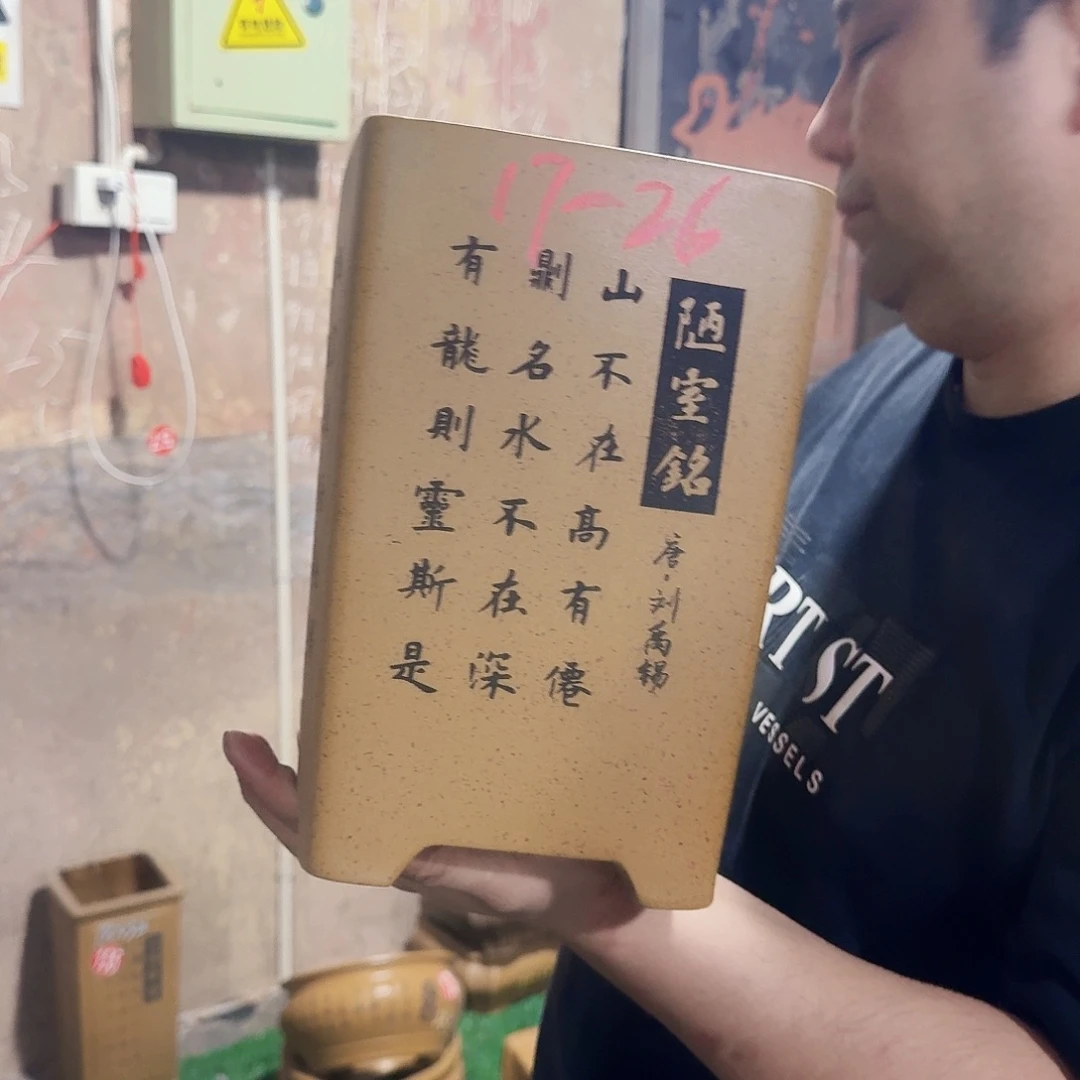 17-26
陋室銘
唐·刘禹锡
山不在高有僊
則名水不在深
有龍則靈斯是
RT ST
VESSELS